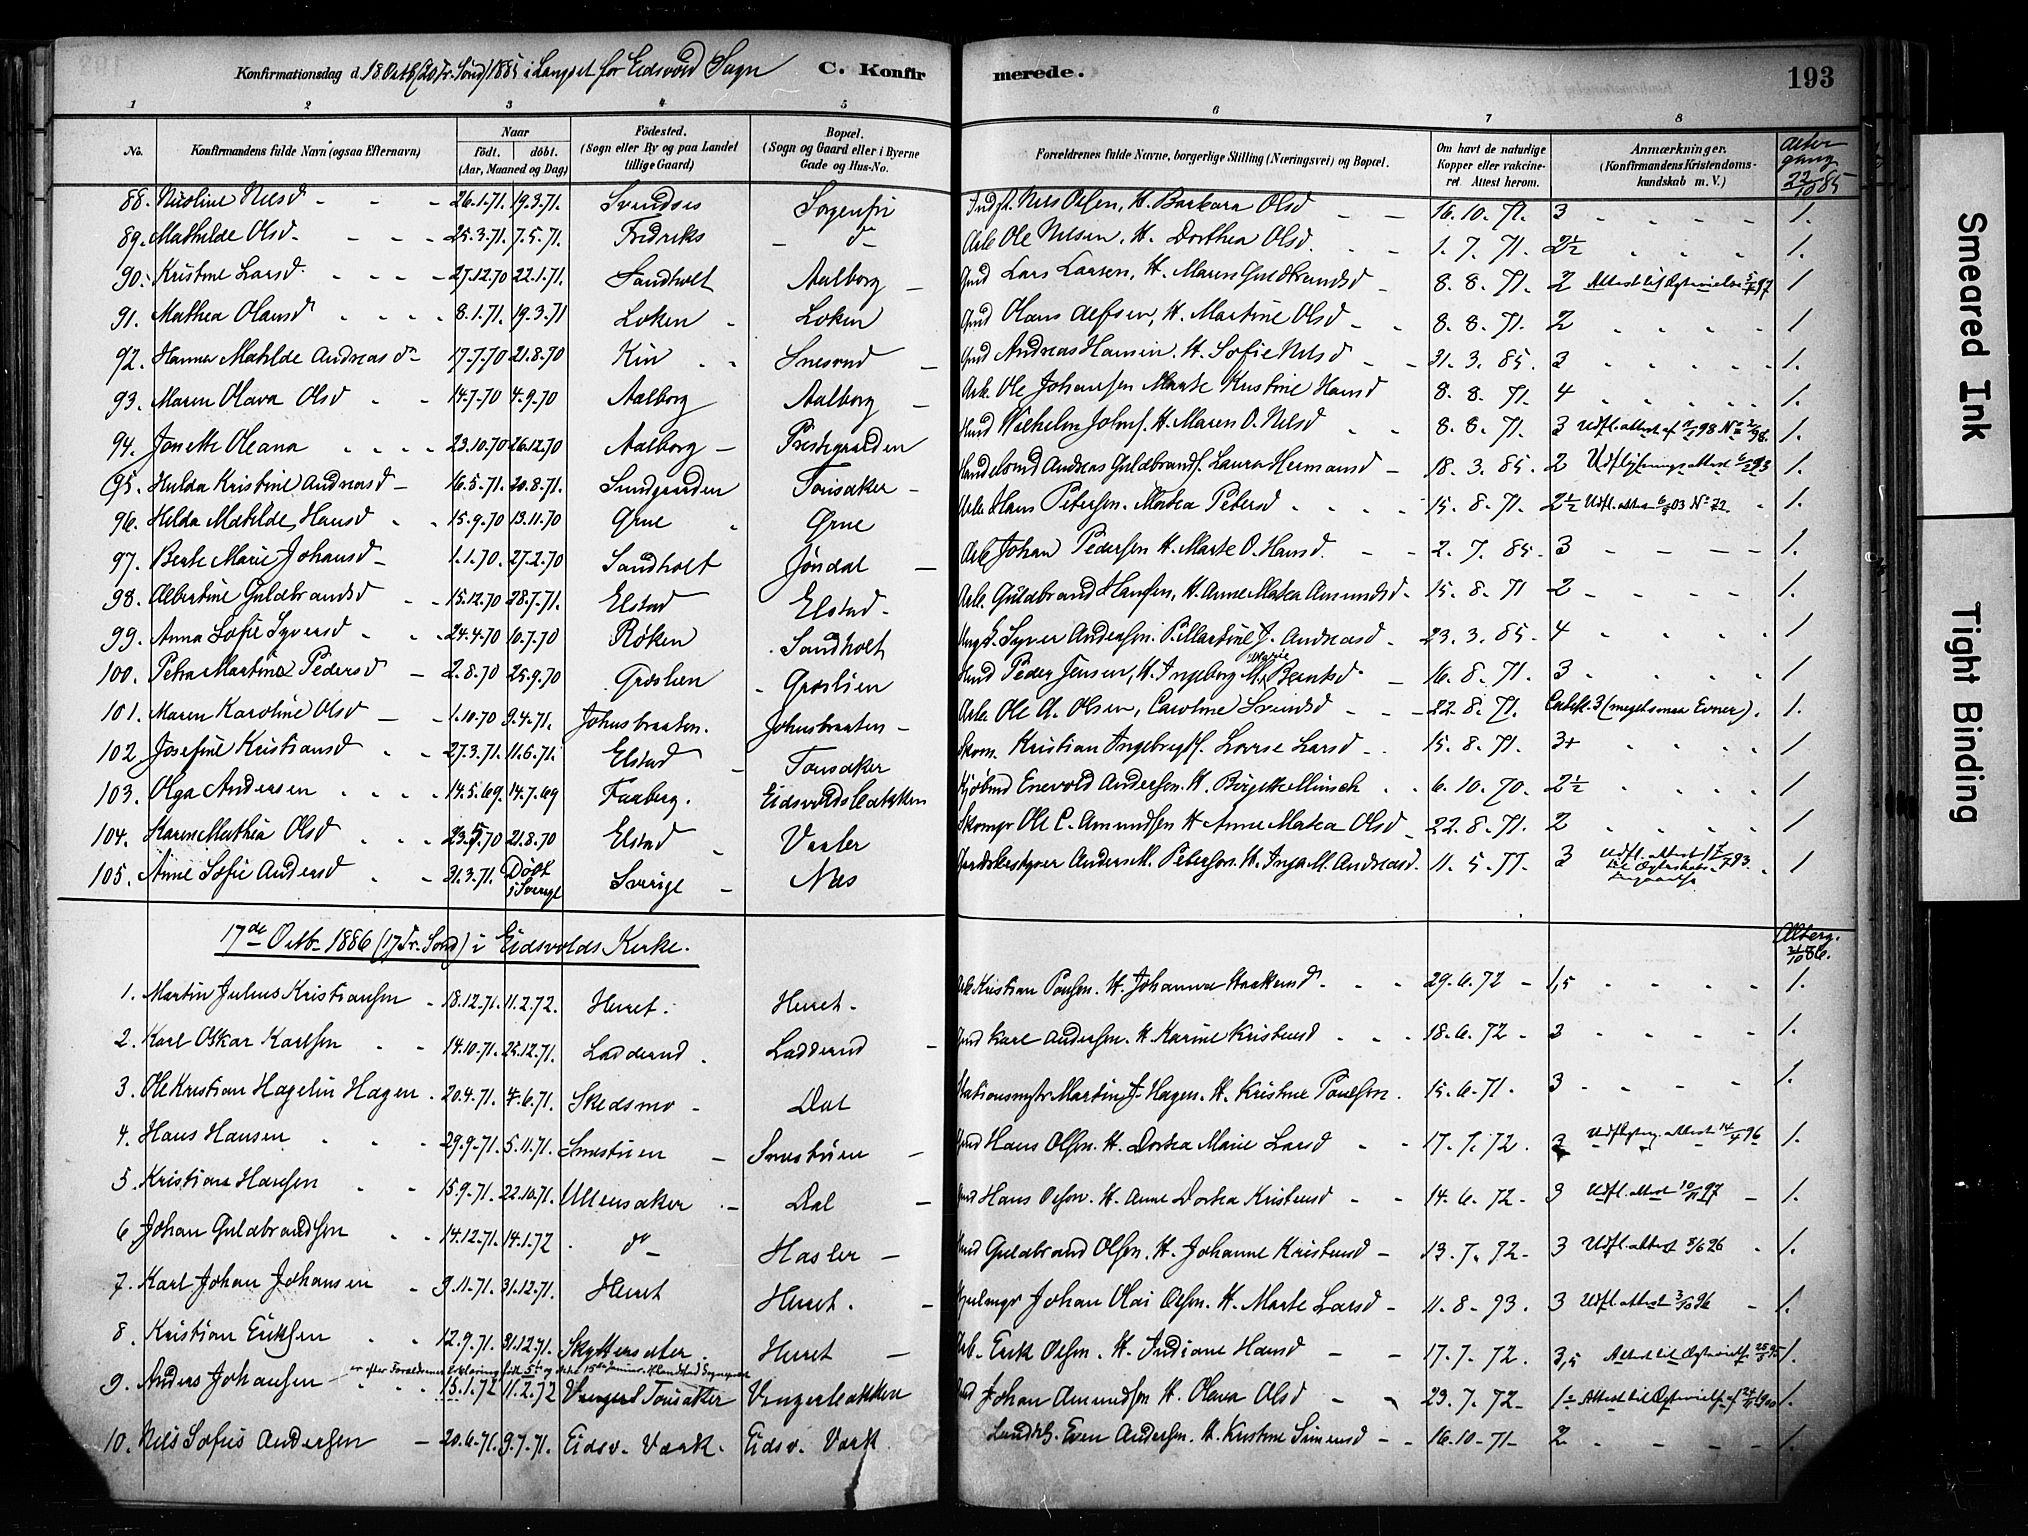 Konfirmationsdag d. 18 Octb (20 Tr. Sönd) 1885 i Langset for Eidsvold Sogn C. Konfirmerede. 193
1 2 3 4 5 6 7 8
No. Konfirmandens fulde Navn (ogsaa Efternavn) Naar födt. döbt. (Aar, Maaned og Dag) Födested. (Sogn eller By og paa Landet tillige Gaard) Bopæl. (Sogn og Gaard eller i Byerne Gade og Hus-No. Forældrenes fulde Navne, borgerlige Stilling (Næringsvei) og Bopæl. Om havt de naturlige Kopper eller vakcineret Attest herom. Anmærkninger. (Konfirmandens Kristendomskundskab m. V.) Altergang 22/10 85
88. Nicoline Nilsd - - - 26.1.71. 19.3.71. Svendses Sorgenfri Indst. Nils Olsen, H. Barbara Olsd - - 16.10.71. 3 1.
89. Mathilde Olsd. - - - 25.3.71. 7.5.71. Fredriks - do - Arb. Ole Nilsen, H. Dorthea Olsd. 1.7.71. 2½ 1.
90. Kristine Larsd. - - - 27.12.70 22.1.71. Sandholt Aalborg - Gmd Lars Larsen, H. Maren Guldbrandsd - 8.8.71. 2 Attest til Ægtevielse 5/7 97 1
91. Mathea Olausd - - - 8.1.71. 19.3.71 Loken - Loken Gmd Olaus Alfsen, H. Martine Olsd - 8.8.71. 2 1
92. Hanna Matilde Andreasd - 17.7.70 21.8.70 Kin Smesrud - Gmd Andreas Hansen. H. Sofie Nilsd - 31.3.85. 3 1.
93. Maren Olava Olsd - - 14.7.70 4.9.70 Aalborg Aalborg - Arb. Ole Johansen Marte Kristine Hansd 8.8.71. 4 1.
94. Jonette Oleana - - - 23.10.70 26.12.70 Aalborg - Prestegaarden Hmd Wilhelm Johns. H. Maren O. Nilsd 8.8.71. 3 1.
95. Hulda Kristine Andreasd - 16.5.71. 20.8.71. Sundgaarden Tonsaker - Handelsmd Andreas Guldbrands. Laura Hermansd - 18.3.85. 2 Udflytningsattest 6/2 93 1.
96. Hilda Matilde Hansd - - 15.9.70 13.11.70 Grue - Grue Arb. Hans Petersen. Matea Petersd - - 15.8.71. 2½ Udfl. attest 6/3 03 No 72 1.
97. Berte Marie Johansd - 1.1.70. 27.2.70 Sandholt Jöndal - Arb Johan Pedersen H. Marte O. Hansd. - - 2.7.85. 3 - - - - 1.
98. Albertine Guldbrandsd - - 15.12.70 28.7.71. Elstad Elstad - Arb. Guldbrand Hansen, H. Anne Matea Amundsd - 15.8.71 2 - 1.
99. Anna Sofie Syversd - - 24.4.70 10.7.70 Røken Sandholt Ungk. Syver Andersen. P. Martine J. Andreasd - 23.3.85. 4 1
100. Petra Martine Pedersd - 2.8.70 25.9.70 Groslien - Groslien Hmd Peder Jensen, H. Ingeborg Marie Berntsd - 16.8.71. 3 1
101. Maren Karoline Olsd - - 1.10.70 9.4.71. Johnsbraaten. Johnsbraaten - Arb. Ole A. Olsen, Caroline Svendsd - - 22.8.71. 3 (meget smaa Evner). 1.
102. Josefine Kristiansd - - 27.3.71. 11.6.71. Elstad - Tonsaker Skom. Kristian Ingebregts. Lovise Larsd - 15.8.71. 3+ 1
103. Olga Andersen - - - 14.5.69. 14.7.69 Faaberg. Eidsvoldsbakken Kjöbmd Enevold Andersen. H. Birgitte Münsch - 6.10.70. 2½ 1
104. Karen Mathea Olsd - - 23.5.70 21.8.70 Elstad - Vaaler Skomgr Ole C. Amundsen H Anne Matea Olsd - 22.8.71. 2 1
105. Anne Sofie Andersd - - 31.3.71. Döbt i Sverige Sverige - Næs Gaardsbestyrer Anders M. Petersen. H. Inga M. Andreasd. 11.5.77. 3 Udfl. attest 17/7 93. 1
17de Octb. 1886 (17 Tr. Sönd) i Eidsvolds Kirke. Alterg. 31/10 86.
1. Martin Julius Kristiansen - 18.12.71. 11.2.72. Herret. Herret. Arb Kristian Paulsen. H. Johanna Haakensd - - 29.6.72 - 1,5 1.
2. Karl Oskar Karlsen - - 14.10.71. 25.12.71. Ladderud - Ladderud - Gmd Karl Andersen. H. Karine Kristensd - - 18.6.72 - 3 1.
3. Ole Kristian Hagelin Hagen - 20.4.71. 4.6.71. Skedsmo - Dal Stationsmstr Martin J. Hagen. H. Kristine Paulsen. 15.6.71. 3 1.
4. Hans Hansen - - 29.9.71. 5.11.71. Smestuen - Smestuen - Gmd Hans Olsen. H. Dortea Marie Larsd - - 17.7.72. 3 Udflytn. attest 14/4 96 1.
5. Kristian Hansen - - 15.9.71. 22.10.71. Ullensaker - Dal - Gmd Hans Olsen. H. Anne Dortea Kristensd - - 14.6.72 - 3 Udfl. attest 10/11 97 - 1.
6. Johan Guldbrandsen - - 14.12.71. 14.1.72 - do - Hasler - Gmd Guldbrand Olsen. H. Johanne Kristensd - 13.7.72 - 3 Udfl. attest 3/6 26 1.
7. Karl Johan Johansen - 9.11.71. 31.12.71. Herret Herret. - Hjulmgr Johan Olai Olsen. H. Marte Larsd - 11.8.93. 3 Udfl. attest 3/10 96 - 1.
8. Kristian Eriksen - - 12.9.71. 31.12.71. Skyttersæter. Herret - Arb. Erik Olsen. H. Indiane Hansd - - 17.7.72. 3,5 Attest til Ægtevielse 25/8 95 1.
9. Anders Johansen - 15.1.72 11.2.72 Tonsaker Vengerbakken Gmd Johan Amundsen H. Olava Olsd - - 23.7.72. 1- Attest til Ægtevielse 24/11 1900 1.
er efter Forældrenes Erklæring født 5te og ikke 15de Januar.
10. Nils Sofus Andersen - 20.6.71. 9.7.71. Eidsv. Værk. Eidsv. Værk Landh. Even Andersen. H. Kristine Simensd - - 16.10.71 - 2 1.
Smeared Ink
Tight Binding